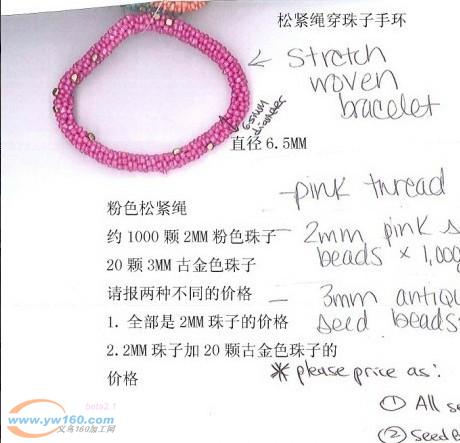 松紧绳穿珠子手环
stretch
woven
bracelet
6.5MM
diameter
直径 6.5MM
粉色松紧绳
pink thread
约 1000 颗 2MM 粉色珠子
2mm pink
beads × 1,000
20 颗 3MM 古金色珠子
请报两种不同的价格
3mm
seed beads
1. 全部是 2MM 珠子的价格
2.2MM 珠子加 20 颗古金色珠子的
价格
* please price as:
① All
② seed
beta2.1
www.yw160.com
义乌160加工网